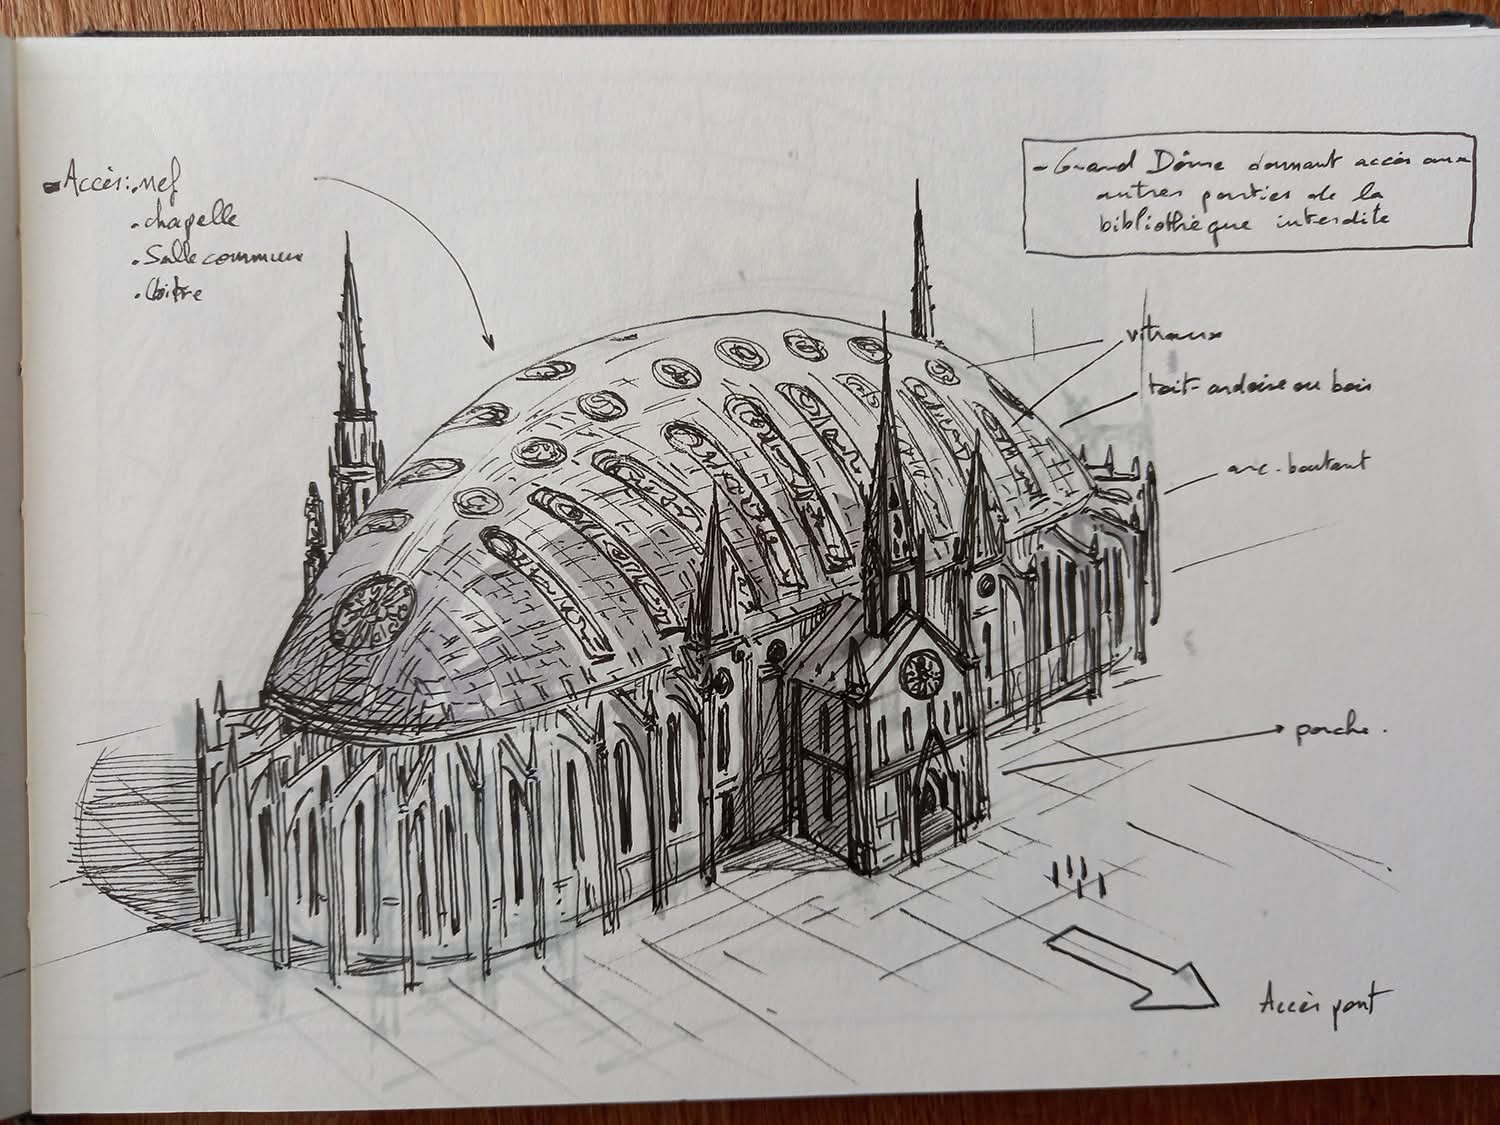 - Accès: . nef
. chapelle
. Salle commune
. Cloître
- Grand Dôme donnant accès aux
autres parties de la
bibliothèque interdite
vitraux
toit-ardoise ou bois
arc-boutant
porche.
Accès pont